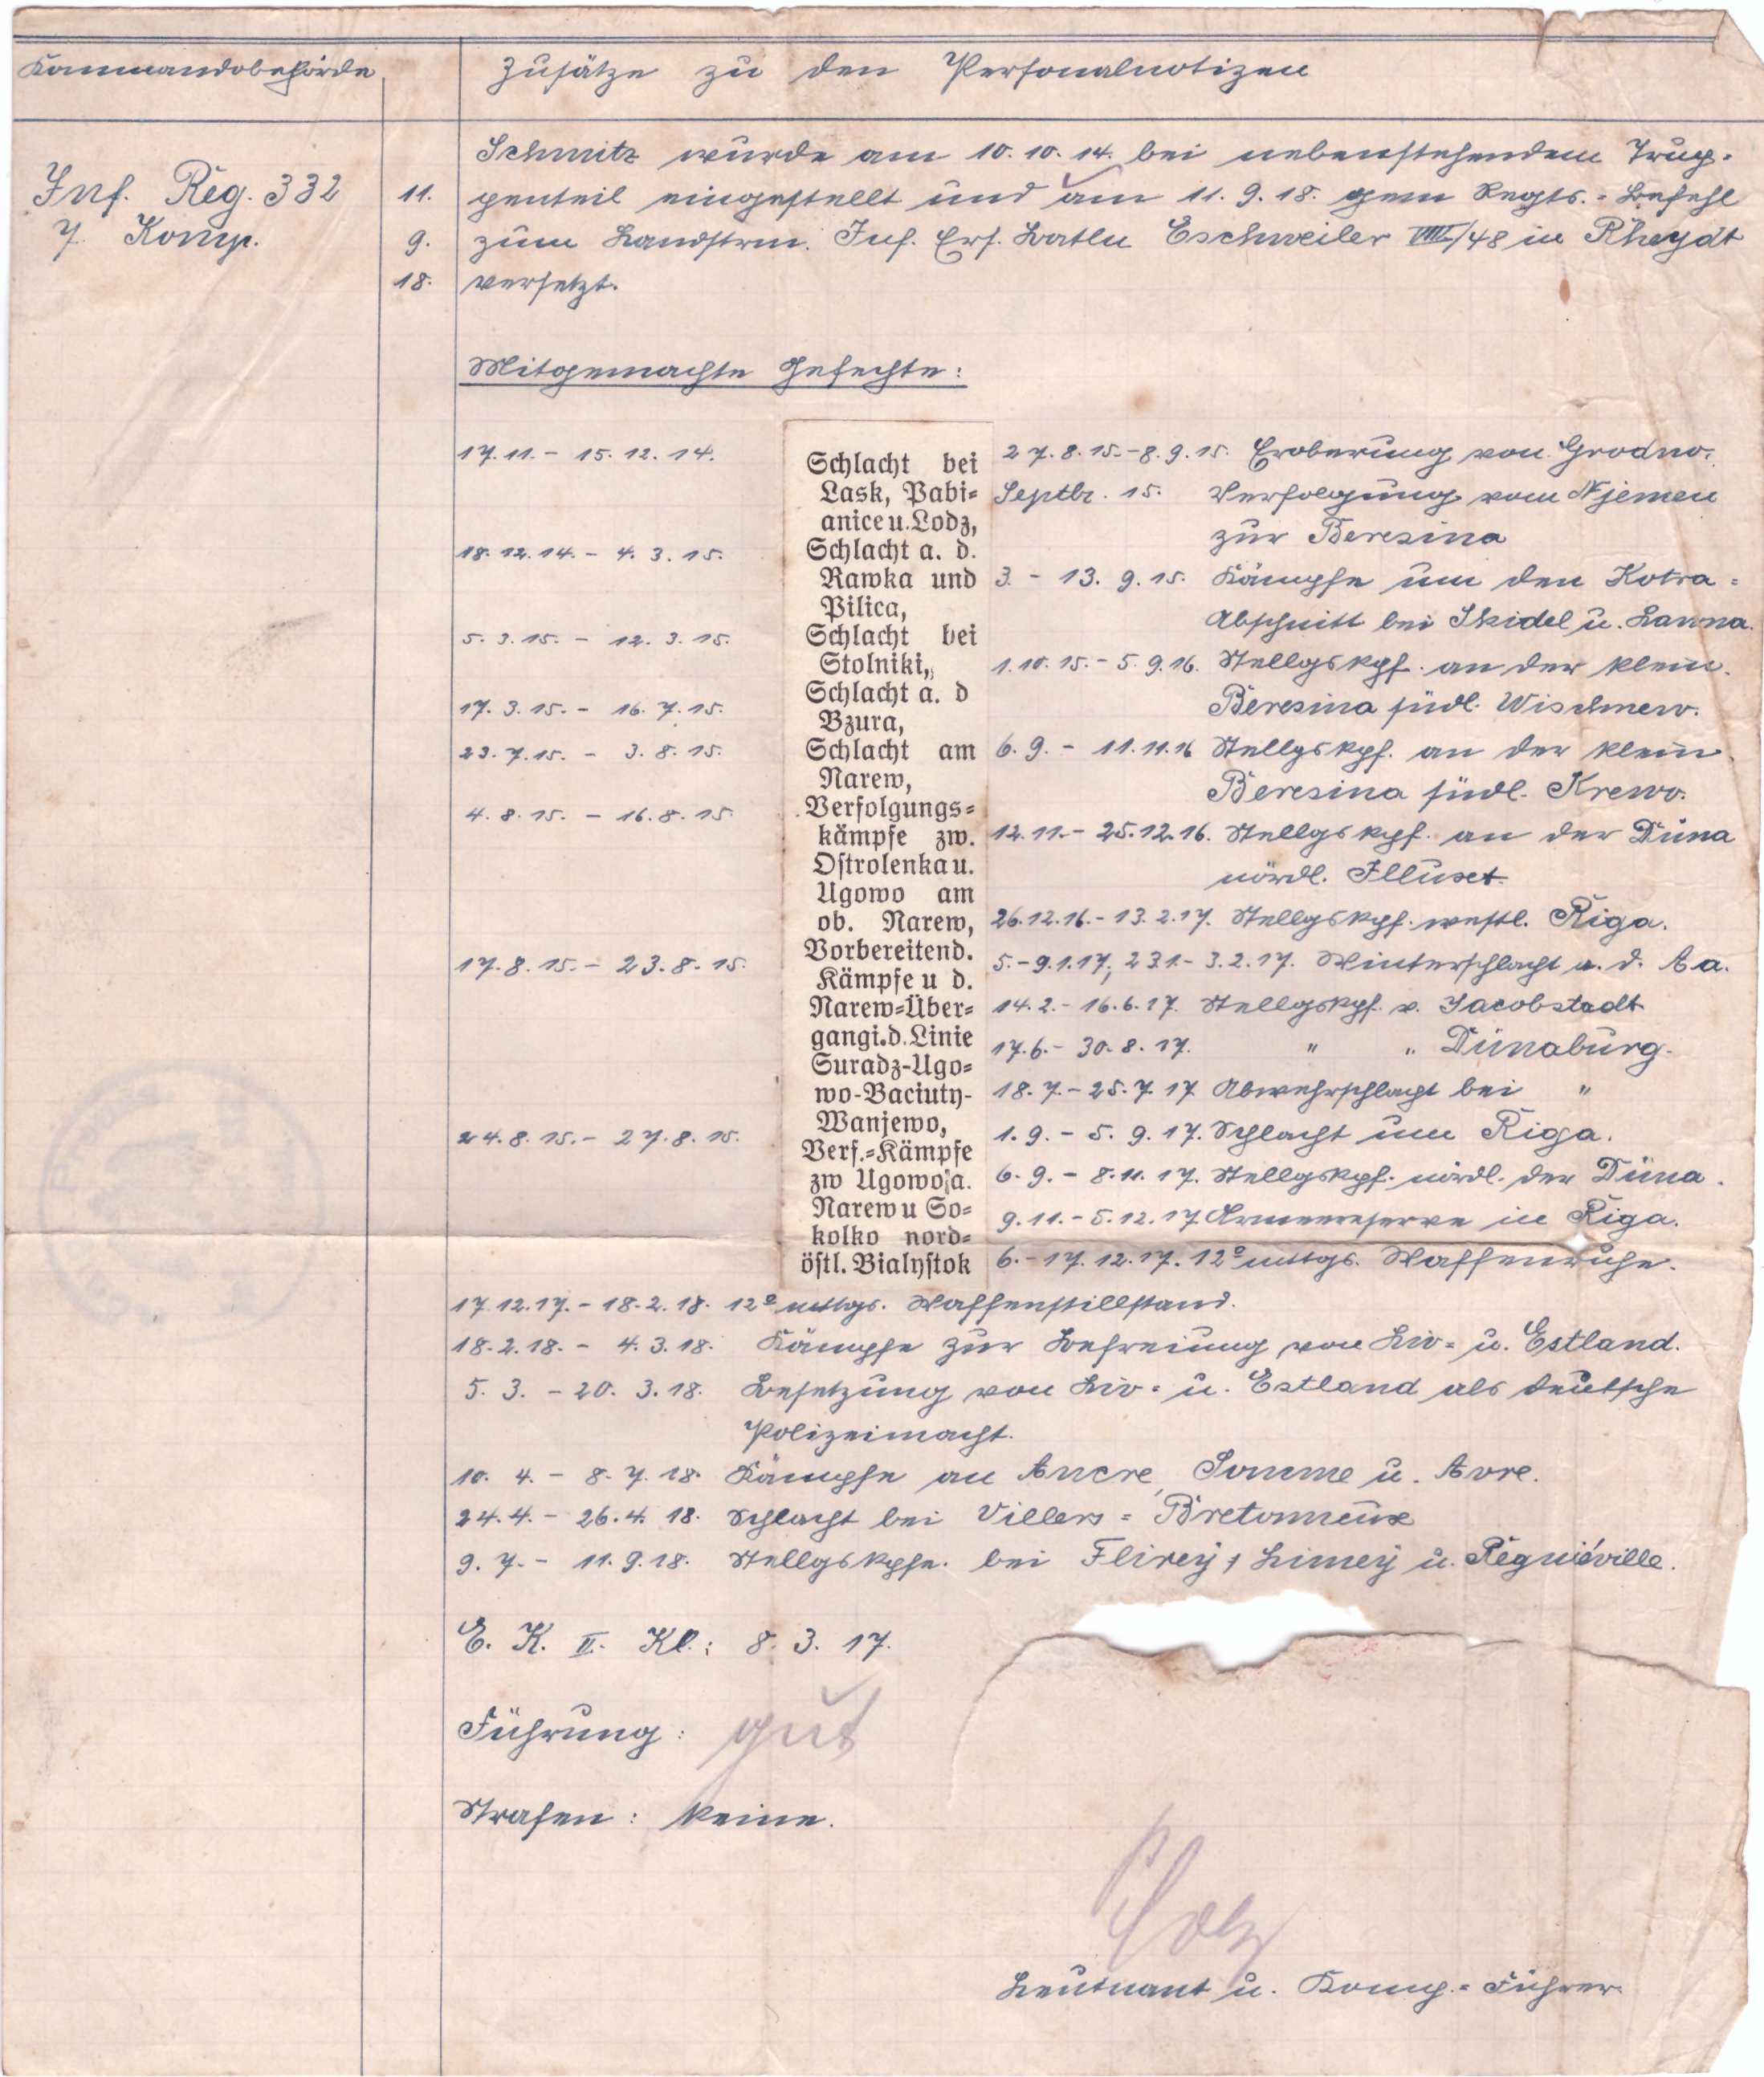 Kommandobehörde
Zusätze zu den Personalnotizen
Inf. Reg. 332
7. Komp.
11.
9.
18.
Schmitz wurde am 10.10.14. bei nebenstehendem Trup-
penteil eingestellt und am 11.9.18. gem Regts.=Befehl
zum Landstrm. Inf. Ers. Batln Eschweiler VIII/48 in Rheydt
versetzt.
Mitgemachte Gefechte:
17.11. - 15.12.14.
18.12.14. - 4.3.15.
5.3.15. - 12.3.15.
17.3.15. - 16.7.15.
23.7.15. - 3.8.15.
4.8.15. - 16.8.15.
17.8.15. - 23.8.15.
24.8.15. - 27.8.15.
Schlacht bei
Lask, Pabi=
anice u. Lodz,
Schlacht a. d.
Rawka und
Pilica,
Schlacht bei
Stolniki,
Schlacht a. d
Bzura,
Schlacht am
Narew,
Verfolgungs=
kämpfe zw.
Ostrolenka u.
Ugowo am
ob. Narew,
Vorbereitend.
Kämpfe u d.
Narew=Über=
gang i. d. Linie
Suradz-Ugo=
wo-Baciuty-
Wanjewo,
Verf.=Kämpfe
zw Ugowo a.
Narew u So=
kolko nord=
östl. Bialystok
27.8.15. - 8.9.15. Eroberung von Grodno.
Septbr. 15. Verfolgung vom Njemen
zur Beresina
3. - 13.9.15. Kämpfe um den Kotra=
Abschnitt bei Skidel u. Lanna.
1.10.15. - 5.9.16. Stellgskpf. an der klein.
Beresina südl. Wischnew.
6.9. - 11.11.16 Stellgskpf. an der klein.
Beresina südl. Krewo.
12.11. - 25.12.16. Stellgskpf. an der Düna
nördl. Illuxt.
26.12.16. - 13.2.17. Stellgskpf. westl. Riga.
5. - 9.1.17, 23.1. - 3.2.17. Winterschlacht a. d. Aa.
14.2. - 16.6.17. Stellgskpf. v. Jacobstadt
17.6. - 30.8.17. " " Dünaburg.
18.7. - 25.7.17 Abwehrschlacht bei "
1.9. - 5.9.17. Schlacht um Riga.
6.9. - 8.11.17. Stellgskpf. nördl. der Düna.
9.11. - 5.12.17 Armeereserve in Riga.
6. - 17.12.17. 12° mttgs. Waffenruhe.
17.12.17. - 18.2.18. 12° mttgs. Waffenstillstand.
18.2.18. - 4.3.18. Kämpfe zur Befreiung von Liv= u. Estland.
5.3. - 20.3.18. Besetzung von Liv= u. Estland als deutsche
Polizeimacht.
10.4. - 8.7.18. Kämpfe an Ancre, Somme u. Avre.
24.4. - 26.4.18. Schlacht bei Villers=Bretonneux
9.7. - 11.9.18. Stellgskpfe. bei Flirey, Limey u. Régniéville.
E. K. II. Kl.: 8.3.17.
Führung: gut
Strafen: keine.
Leutnant u. Komp.=Führer.